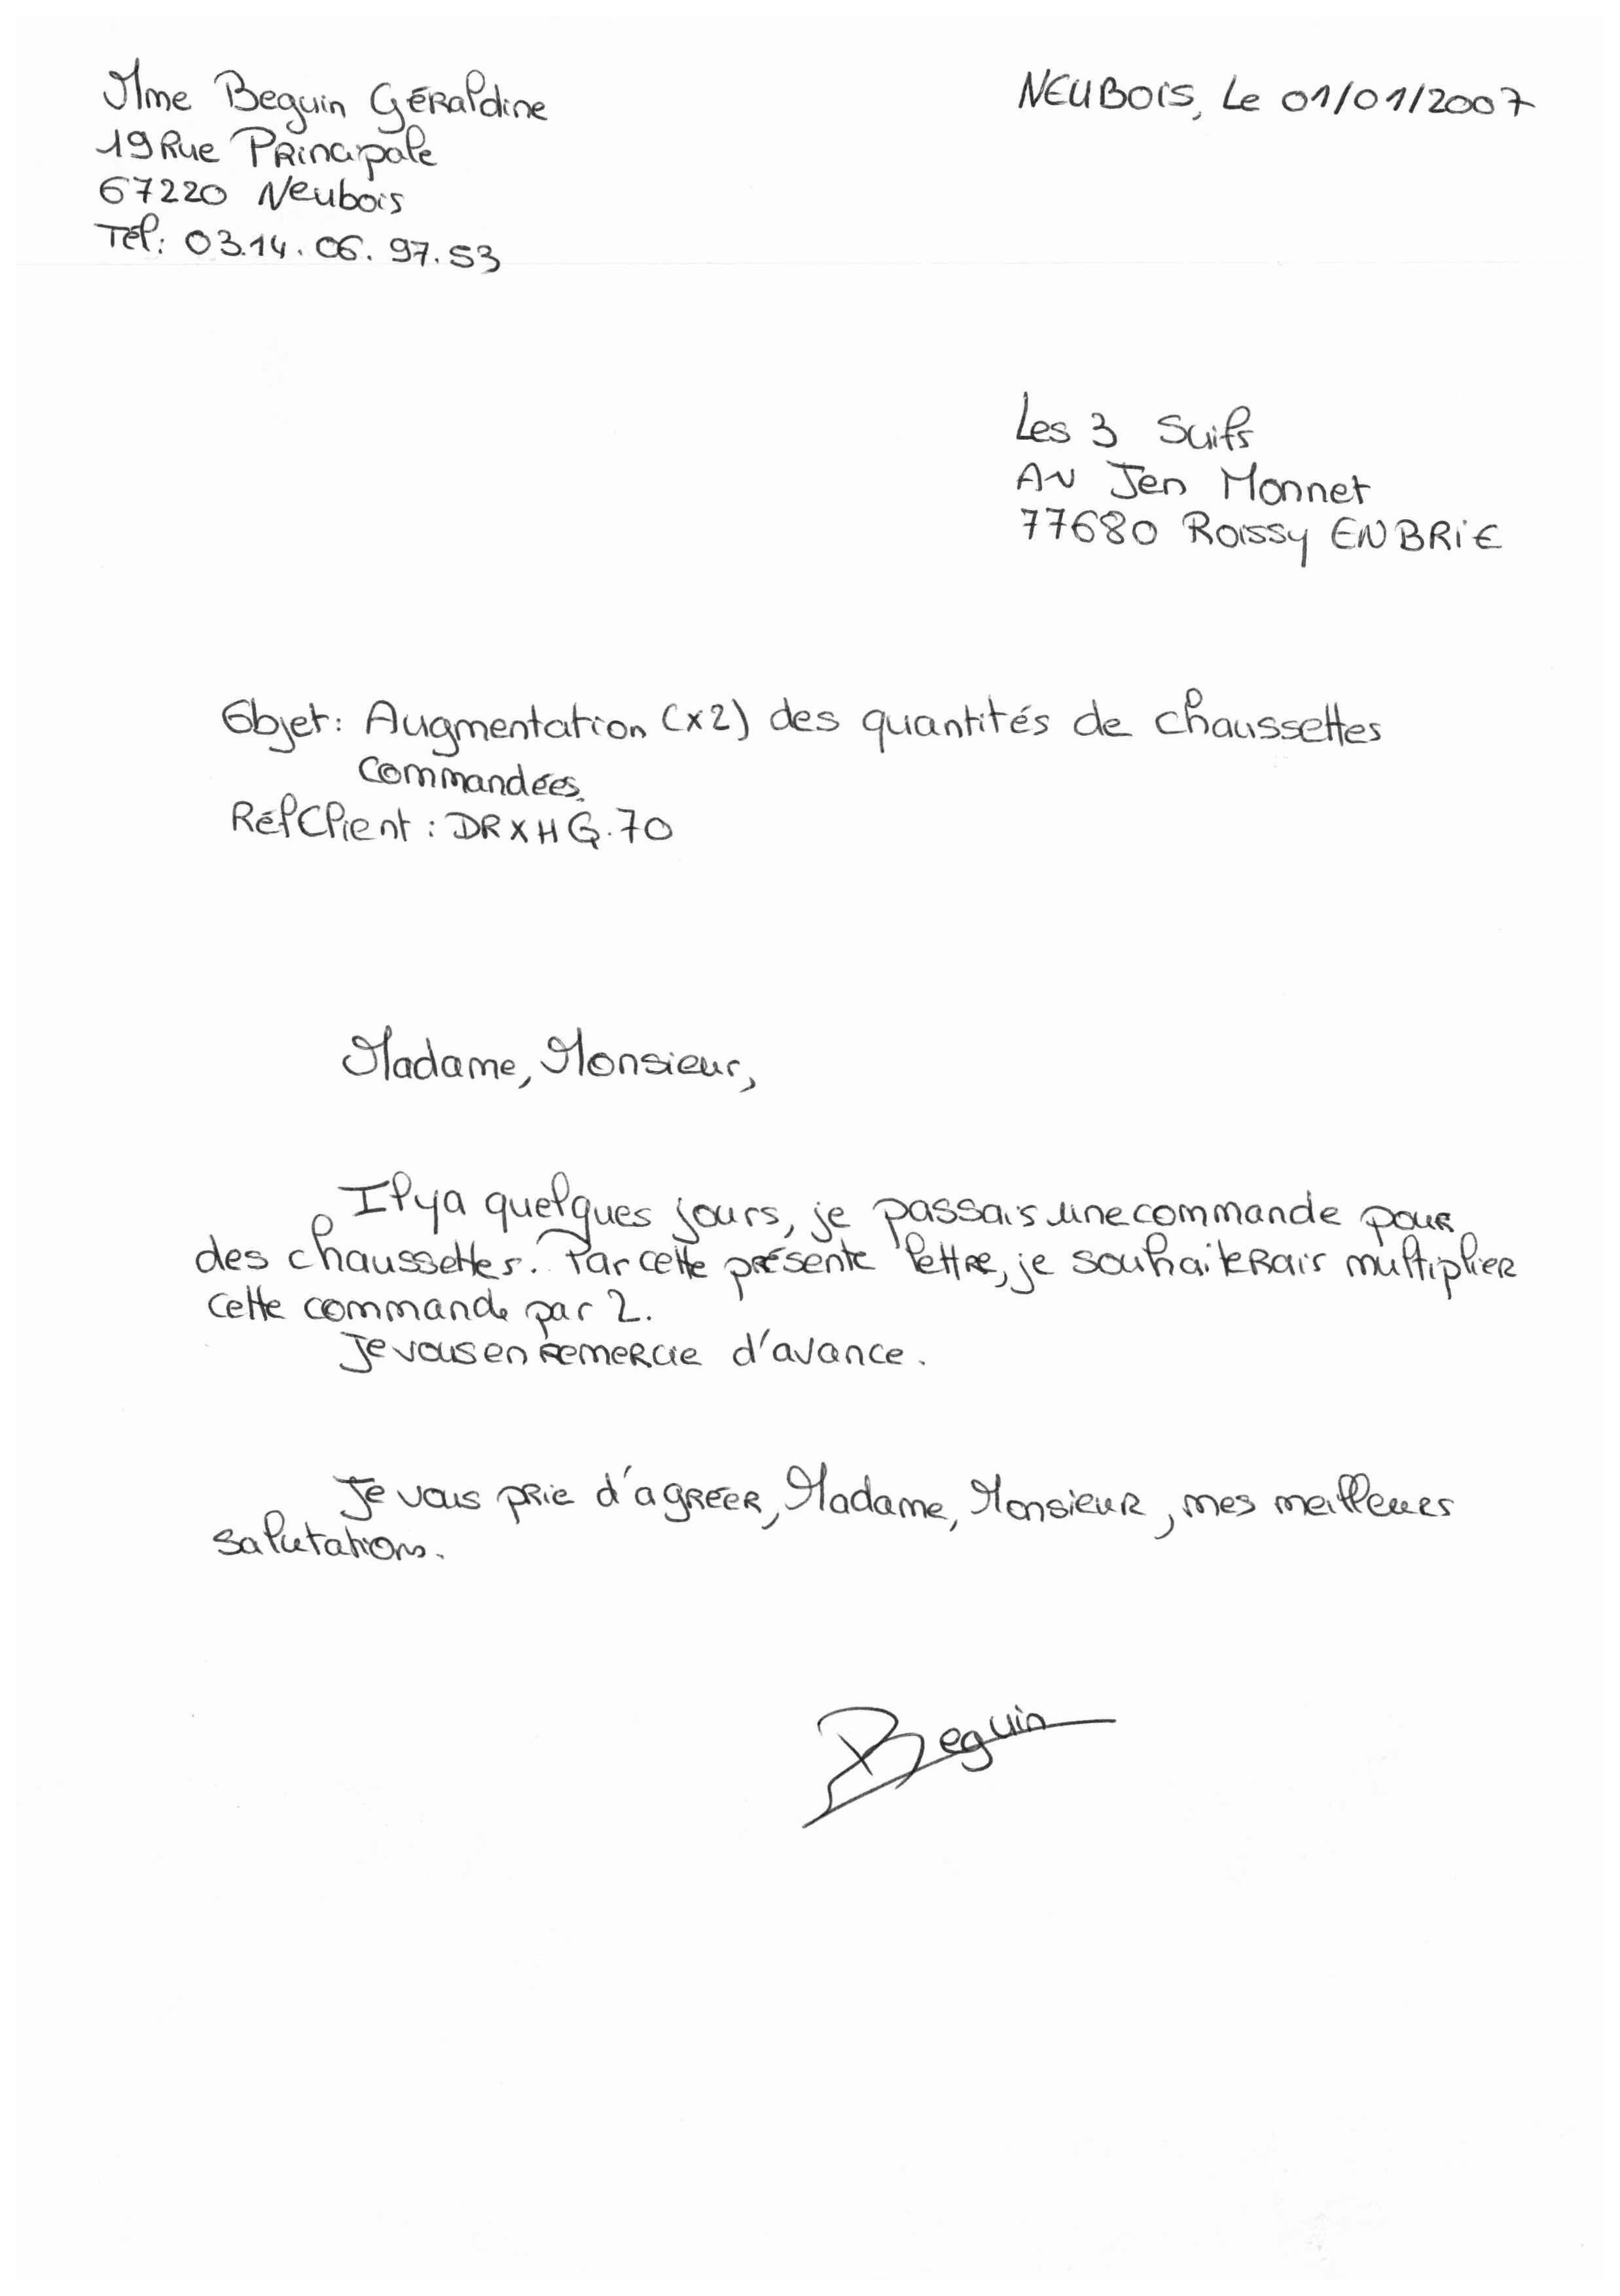 Mme Beguin Géraldine
19 Rue Principale
67220 Neubois
Tél: 03.14.06.97.53
NEUBOIS, Le 01/01/2007
Les 3 Suifs
Av Jen Monnet
77680 Roissy EN BRIE
Objet: Augmentation (x2) des quantités de chaussettes
commandées.
Réf Client : DRXHG.70
Madame, Monsieur,
Il y a quelques jours, je passais une commande pour
des chaussettes. Par cette présente lettre, je souhaiterais multiplier
cette commande par 2.
Je vous en remercie d'avance.
Je vous prie d'agréer, Madame, Monsieur, mes meilleures
salutations.
Beguin